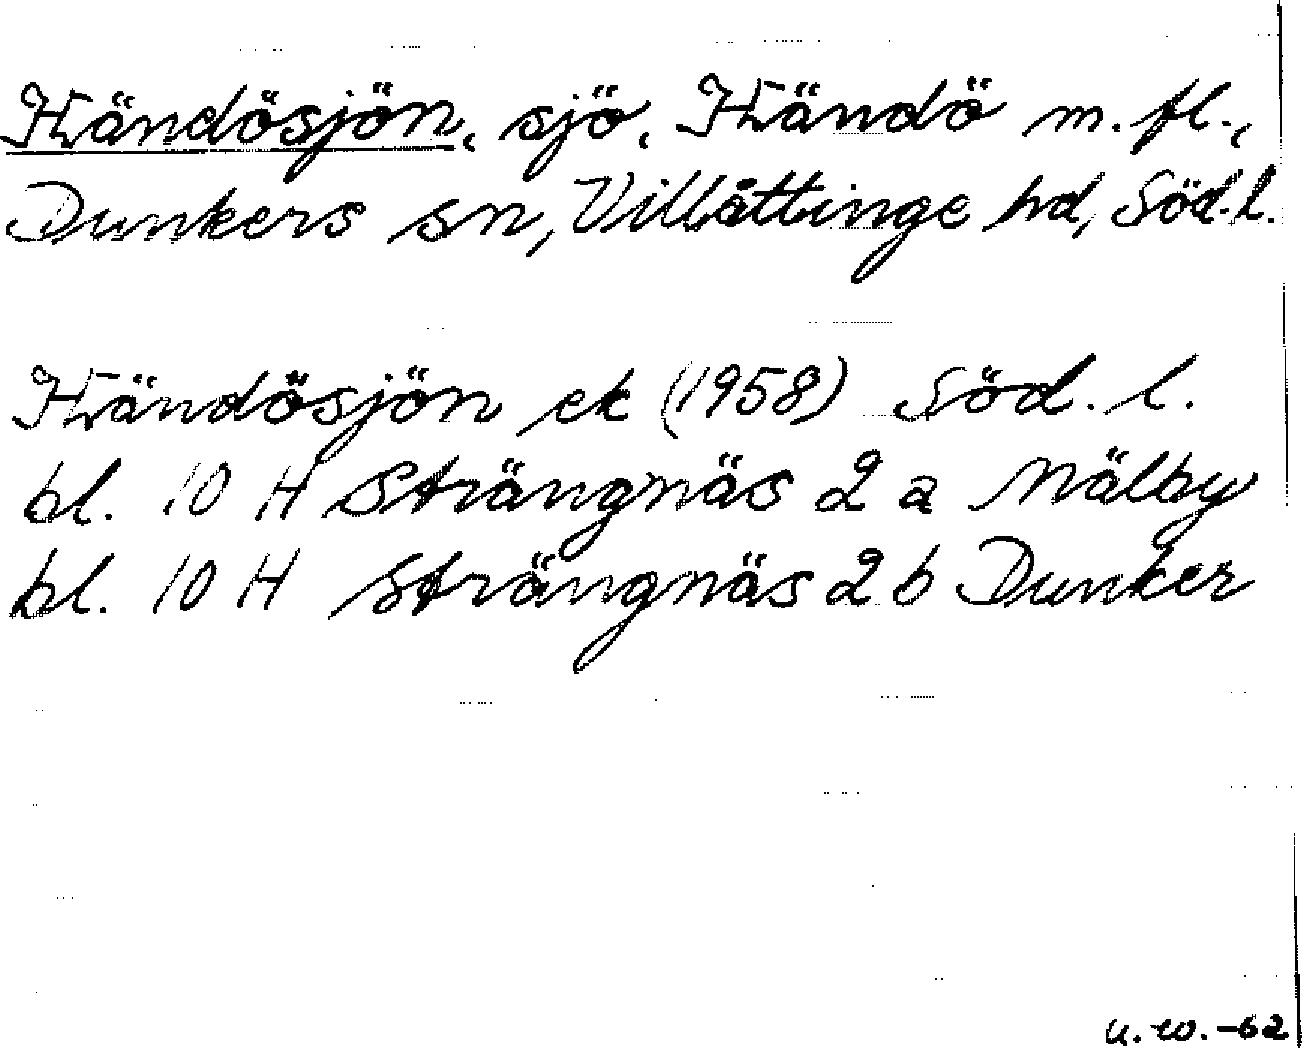 Händösjön, sjö, Händö m. fl.,
Dunkers sn, Villåttinge hd, Söd. l.
Händösjön ek (1958) Söd. l.
bl. 10 H Strängnäs 2 a Mälby
bl. 10 H Strängnäs 2 b Dunker
U. W. -62